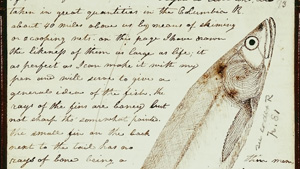 taken in great quantities in the Columbia R.
about 40 miles above us by means of skiming
or scooping nets. on this page I have drawn
the likeness of them as large as life; it
as perfect as I can make it with my
pen and will serve to give a
general idea of the fish. the
rays of the fins are boney but
not sharp tho' somewhat pointed.
the small fin on the back
next to the tail has no
rays of bone being a
thin mem